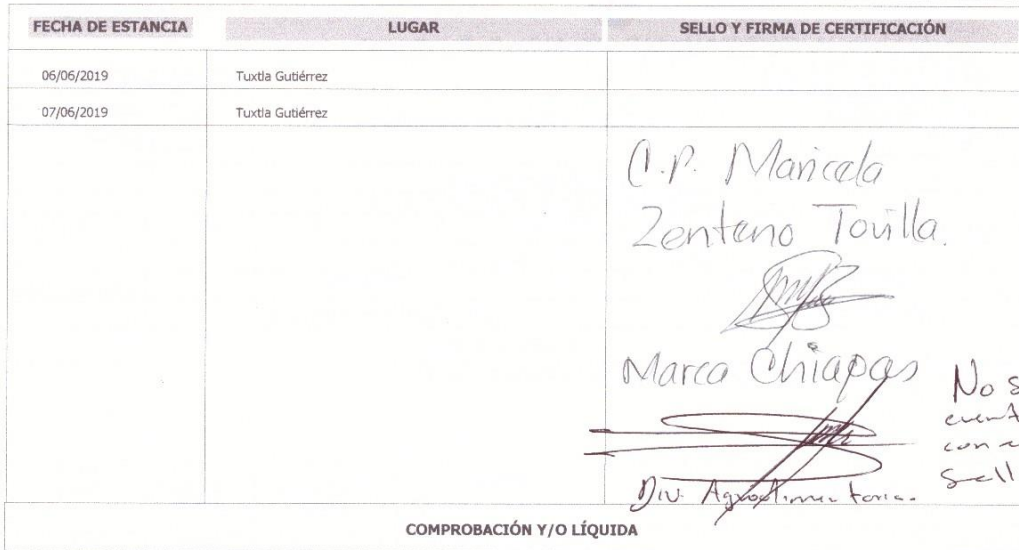 FECHA DE ESTANCIA LUGAR SELLO Y FIRMA DE CERTIFICACIÓN
06/06/2019 Tuxtla Gutiérrez
07/06/2019 Tuxtla Gutiérrez
C.P. Maricela
Zenteno Tovilla.
Marca Chiapas
No s
con
Sell
Div. Agroalimentaria.
COMPROBACIÓN Y/O LÍQUIDA